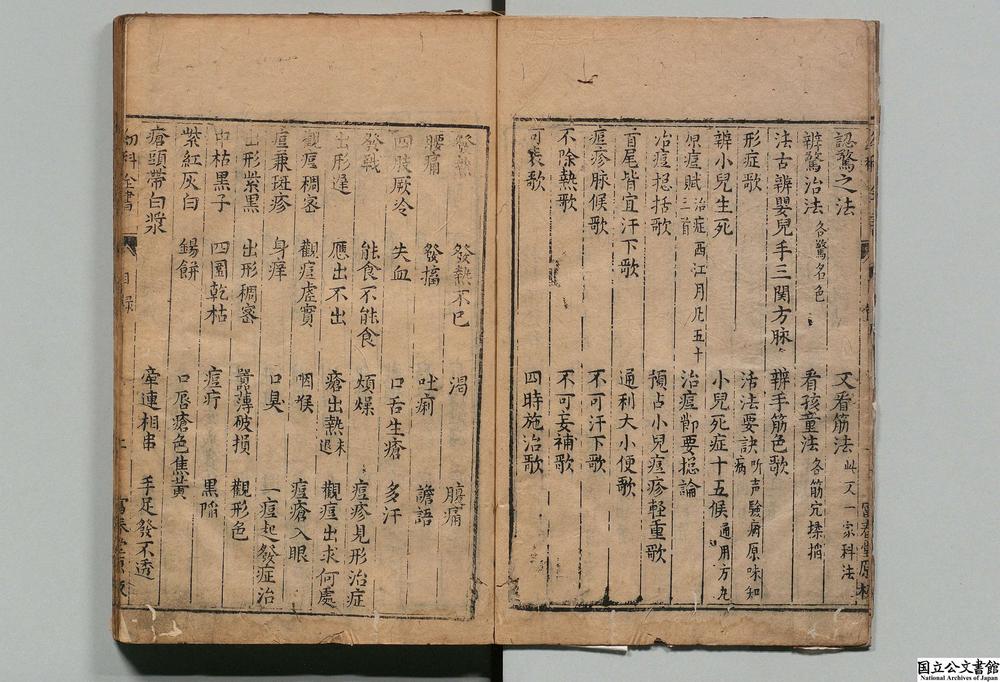 認驚之法 又看筋法 此又一家科法
辨驚治法 各驚名色 看孩童法 各筋穴揉掐
法古辨嬰兒手三関方脉 辨手筋色歌
形症歌 活法要訣 听声驗病原味知病
辨小兒生死 小兒死症十五候 通用方九
原痘賦 治症西江月凡五十三首 治痘節要捴論
治痘捴括歌 預占小兒痘疹輕重歌
首尾皆宜汗下歌 通利大小便歌
痘疹脉候歌 不可汗下歌
不除熱歌 不可妄補歌
可表歌 四時施治歌
富春堂原板
發熱 發熱不已 渴 腹痛
腰痛 發搐 吐痢 譫語
四肢厥冷 失血 口舌生瘡 多汗
發戰 能食不能食 煩燥 痘疹見形治症
出形遲 應出不出 瘡出熱未退 觀痘出求何處
觀痘稠密 觀痘虚實 咽喉 痘瘡入眼
痘兼斑疹 身痒 口臭 一痘起發症治
出形紫黑 出形稠密 嚣薄破損 觀形色
中枯黒子 四圍乾枯 痘疔 黒陷
紫紅灰白 錫餅 口唇瘡色焦黄
瘡頭帶白漿 牽連相串 手足發不透
幼科全書 目録 上 富春堂原板
国立公文書館
National Archives of Japan